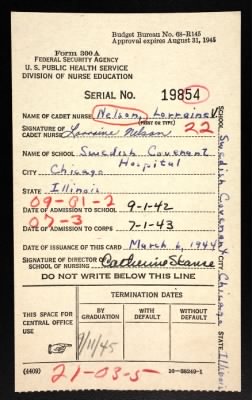 Budget Bureau No. 68-R145
Approval expires August 31, 1945
Form 300A
FEDERAL SECURITY AGENCY
U. S. PUBLIC HEALTH SERVICE
DIVISION OF NURSE EDUCATION
SERIAL NO. 19854
NAME OF CADET NURSE Nelson, Lorraine V
(PRINT OR TYPE)
22
SIGNATURE OF CADET NURSE Lorraine Nelson
NAME OF SCHOOL Swedish Covenant Hospital
CITY Chicago
STATE Illinois
09-81-2
DATE OF ADMISSION TO SCHOOL 9-1-42
07-3
DATE OF ADMISSION TO CORPS 7-1-43
DATE OF ISSUANCE OF THIS CARD March 6, 1944
SIGNATURE OF DIRECTOR OF SCHOOL OF NURSING Catherine
DO NOT WRITE BELOW THIS LINE
THIS SPACE FOR CENTRAL OFFICE USE
TERMINATION DATES
BY GRADUATION
WITH DEFAULT
WITHOUT DEFAULT
9/11/45
(4409)
21-03-5
16-38249-1
SCHOOL Swedish Covenant CITY Chicago STATE Illinois